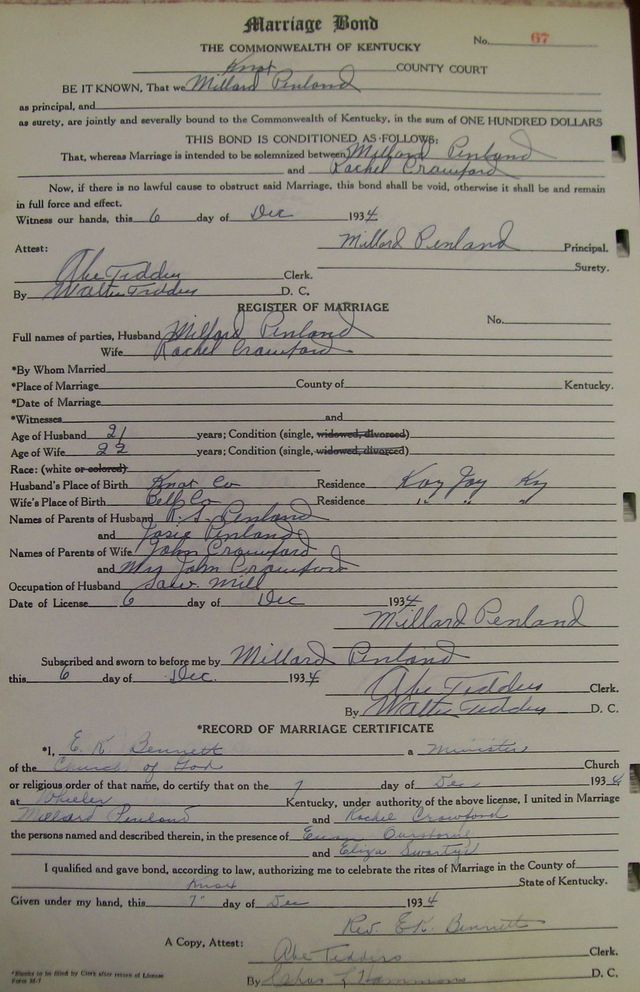 Marriage Bond
No. 67
THE COMMONWEALTH OF KENTUCKY
Knox COUNTY COURT
BE IT KNOWN, That we Millard Penland
as principal, and
as surety, are jointly and severally bound to the Commonwealth of Kentucky, in the sum of ONE HUNDRED DOLLARS
THIS BOND IS CONDITIONED AS FOLLOWS:
That, whereas Marriage is intended to be solemnized between Millard Penland
and Rachel Crawford
Now, if there is no lawful cause to obstruct said Marriage, this bond shall be void, otherwise it shall be and remain
in full force and effect.
Witness our hands, this 6 day of Dec 1934
Millard Penland Principal.
Attest:
Surety.
Abe Tedders Clerk.
By Walter Tedders D. C.
REGISTER OF MARRIAGE
No.
Full names of parties, Husband Millard Penland
Wife Rachel Crawford
*By Whom Married
*Place of Marriage County of Kentucky.
*Date of Marriage
*Witnesses and
Age of Husband 21 years; Condition (single, widowed, divorced)
Age of Wife 22 years; Condition (single, widowed, divorced)
Race: (white or colored)
Husband's Place of Birth Knox Co Residence Kay Jay Ky
Wife's Place of Birth Bell Co Residence " " "
Names of Parents of Husband Penland
and Josie Penland
Names of Parents of Wife John Crawford
and Mrs John Crawford
Occupation of Husband Saw. Mill
Date of License 6 day of Dec 1934
Millard Penland
Subscribed and sworn to before me by Millard Penland
this 6 day of Dec. 1934
Abe Tedders Clerk.
By Walter Tedders D. C.
*RECORD OF MARRIAGE CERTIFICATE
*I, E. K. Bennett a Minister
of the Church of God Church
or religious order of that name, do certify that on the 7 day of Dec 1934
at Wheeler Kentucky, under authority of the above license, I united in Marriage
Millard Penland and Rachel Crawford
the persons named and described therein, in the presence of
and Eliza
I qualified and gave bond, according to law, authorizing me to celebrate the rites of Marriage in the County of
Knox State of Kentucky.
Given under my hand, this 7" day of Dec 1934
Rev. E. K. Bennett
A Copy, Attest: Abe Tedders Clerk.
By Hammons D. C.
*Blanks to be filled by Clerk after return of License
Form M-7